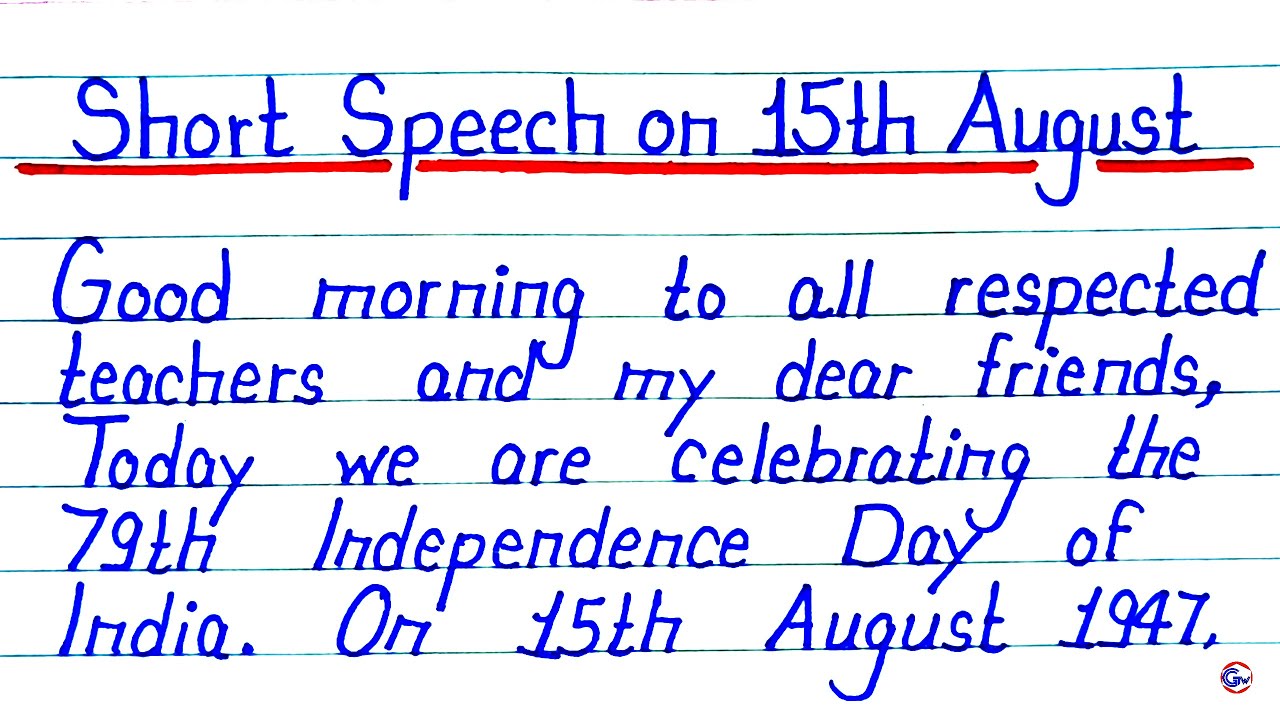 Short Speech on 15th August
Good morning to all respected
teachers and my dear friends,
Today we are celebrating the
79th Independence Day of
India. On 15th August 1947,
GTW